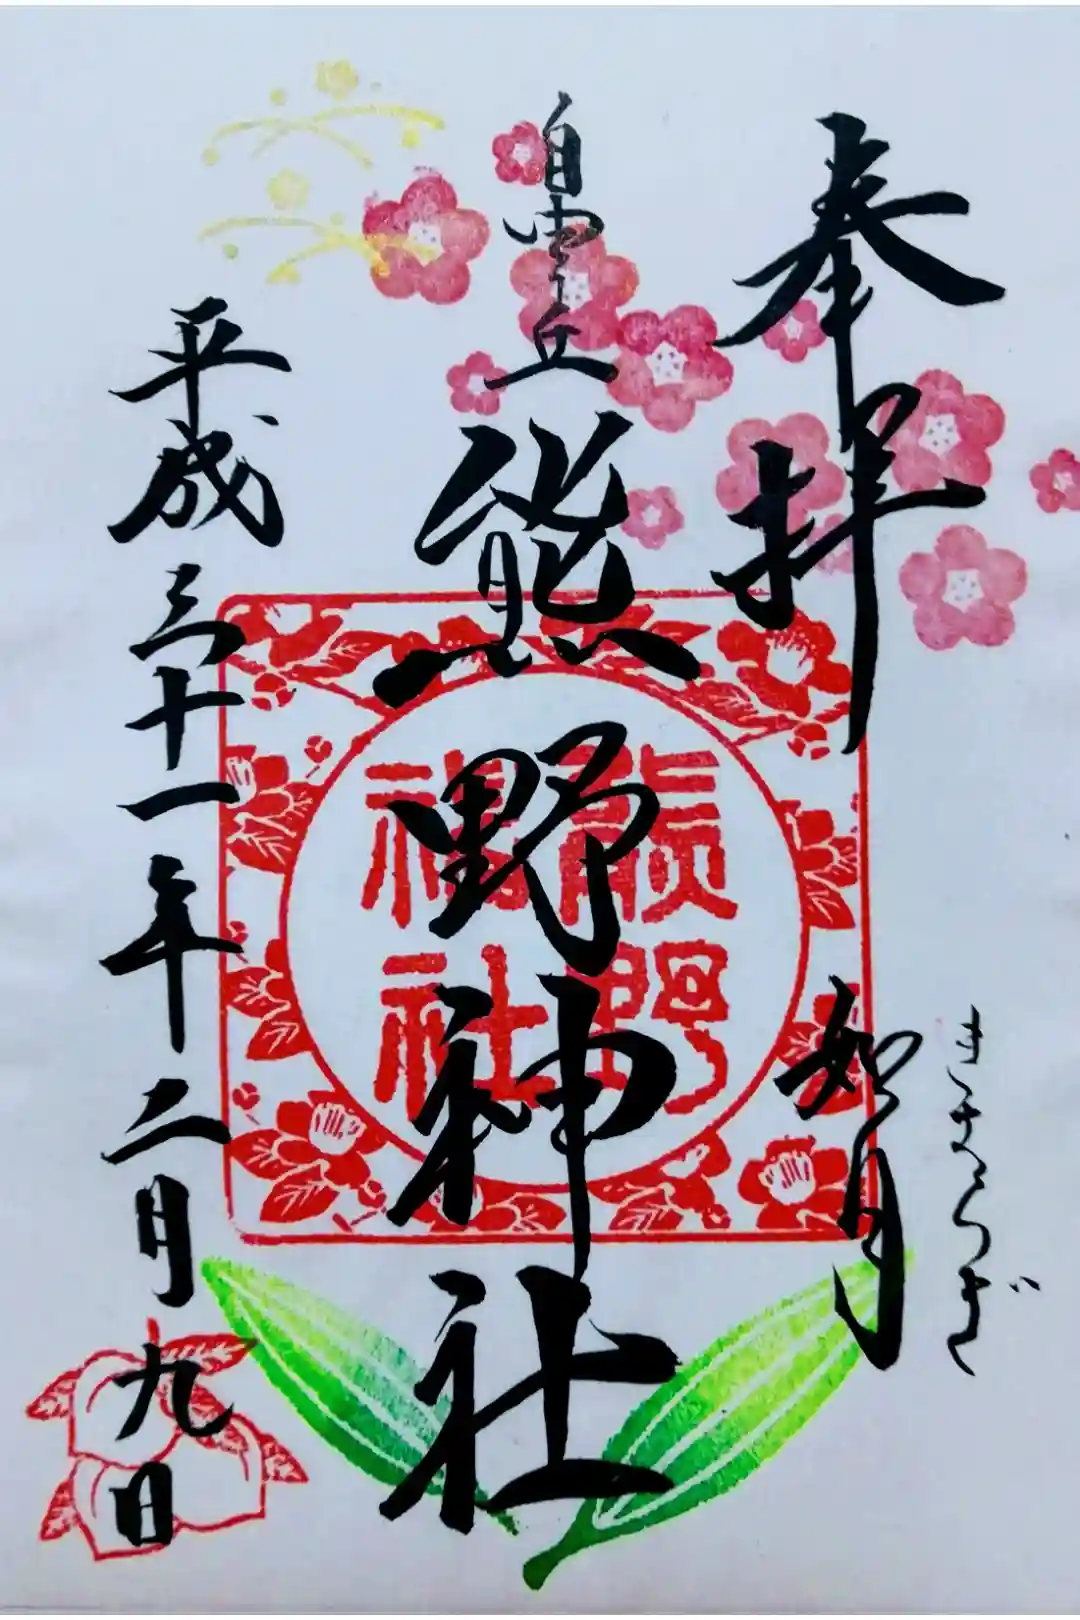 奉拝
如月
きさらぎ
自由ヶ丘
熊野神社
熊野
神社
平成三十一年二月九日